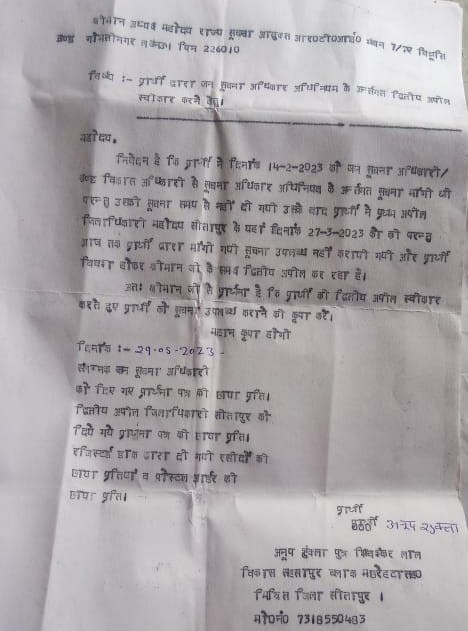 श्रीमान अध्यक्ष महोदय राज्य सूचना आयुक्त आर०टी०आई० भवन 7/7ए विभूति
खण्ड गोमतीनगर लखनऊ पिन 226010
विषय :- प्रार्थी द्वारा जन सूचना अधिकार अधिनियम के अन्तर्गत द्वितीय अपील
स्वीकार करने हेतु।
महोदय,
निवेदन है कि प्रार्थी ने दिनांक 14-2-2023 को जन सूचना अधिकारी/
खण्ड विकास अधिकारी से सूचना अधिकार अधिनियम के अन्तर्गत सूचना मांगी थी
परन्तु उसकी सूचना समय से नहीं दी गयी उसके बाद प्रार्थी ने प्रथम अपील
जिलाधिकारी महोदय सीतापुर के यहाँ दिनांक 27-3-2023 को की परन्तु
आज तक प्रार्थी द्वारा मांगी गयी सूचना उपलब्ध नहीं करायी गयी और प्रार्थी
विवश होकर श्रीमान जी के समक्ष द्वितीय अपील कर रहा है।
अतः श्रीमान जी से प्रार्थना है कि प्रार्थी की द्वितीय अपील स्वीकार
करते हुए प्रार्थी को सूचना उपलब्ध कराने की कृपा करें।
महान कृपा होगी
दिनांक :- 29.05-2023
संलग्नक जन सूचना अधिकारी
को दिए गए प्रार्थना पत्र की छाया प्रति।
द्वितीय अपील जिलाधिकारी सीतापुर को
दिये गये प्रार्थना पत्र की छाया प्रति।
रजिस्टर्ड डाक द्वारा दी गयी रसीदों की
छाया प्रतियां व पोस्टल आर्डर की
छाया प्रति।
प्रार्थी
अनूप शुक्ला
अनूप शुक्ला पुत्र लाल
ब्लाक
जिला सीतापुर।
मो०नं० 7318550483